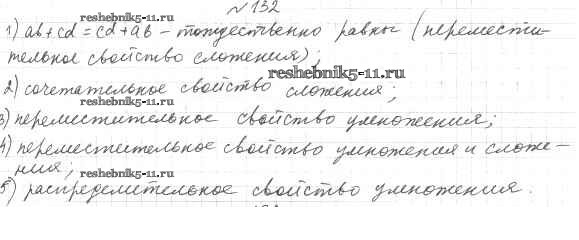 № 132
reshebnik5-11.ru
1) ab + cd = cd + ab – тождественно равны (перемести-
тельное свойство сложения);
reshebnik5-11.ru
2) сочетательное свойство сложения;
reshebnik5-11.ru
3) переместительное свойство умножения;
4) переместительное свойство умножения и сложе-
ния;
reshebnik5-11.ru
5) распределительное свойство умножения.